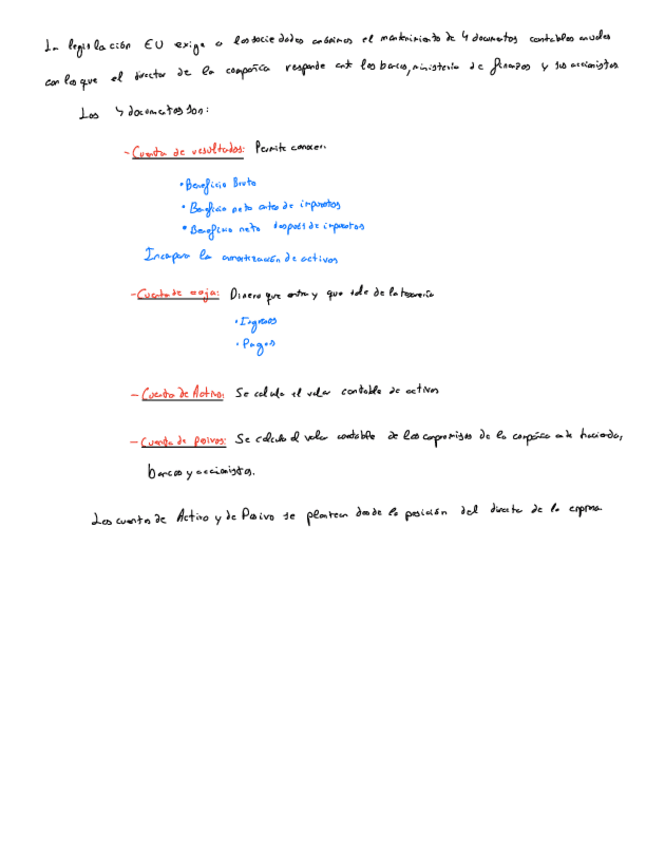 La legislación EU exige a las sociedades anónimas el mantenimiento de 4 documentos contables anuales
con los que el director de la compañía responde ante los bancos, ministerio de finanzas y sus accionistas
Los 4 documentos son:
- Cuenta de resultados: Permite conocer:
• Beneficio Bruto
• Beneficio neto antes de impuestos
• Beneficio neto después de impuestos
Incorpora la amortización de activos
- Cuenta de caja: Dinero que entra y que sale de la tesorería
• Ingresos
• Pagos
- Cuenta de Activo: Se calcula el valor contable de activos
- Cuenta de pasivos: Se calcula el valor contable de los compromisos de la compañía ante hacienda,
bancos y accionistas.
Las cuentas de Activo y de Pasivo se plantean desde la posición del director de la empresa